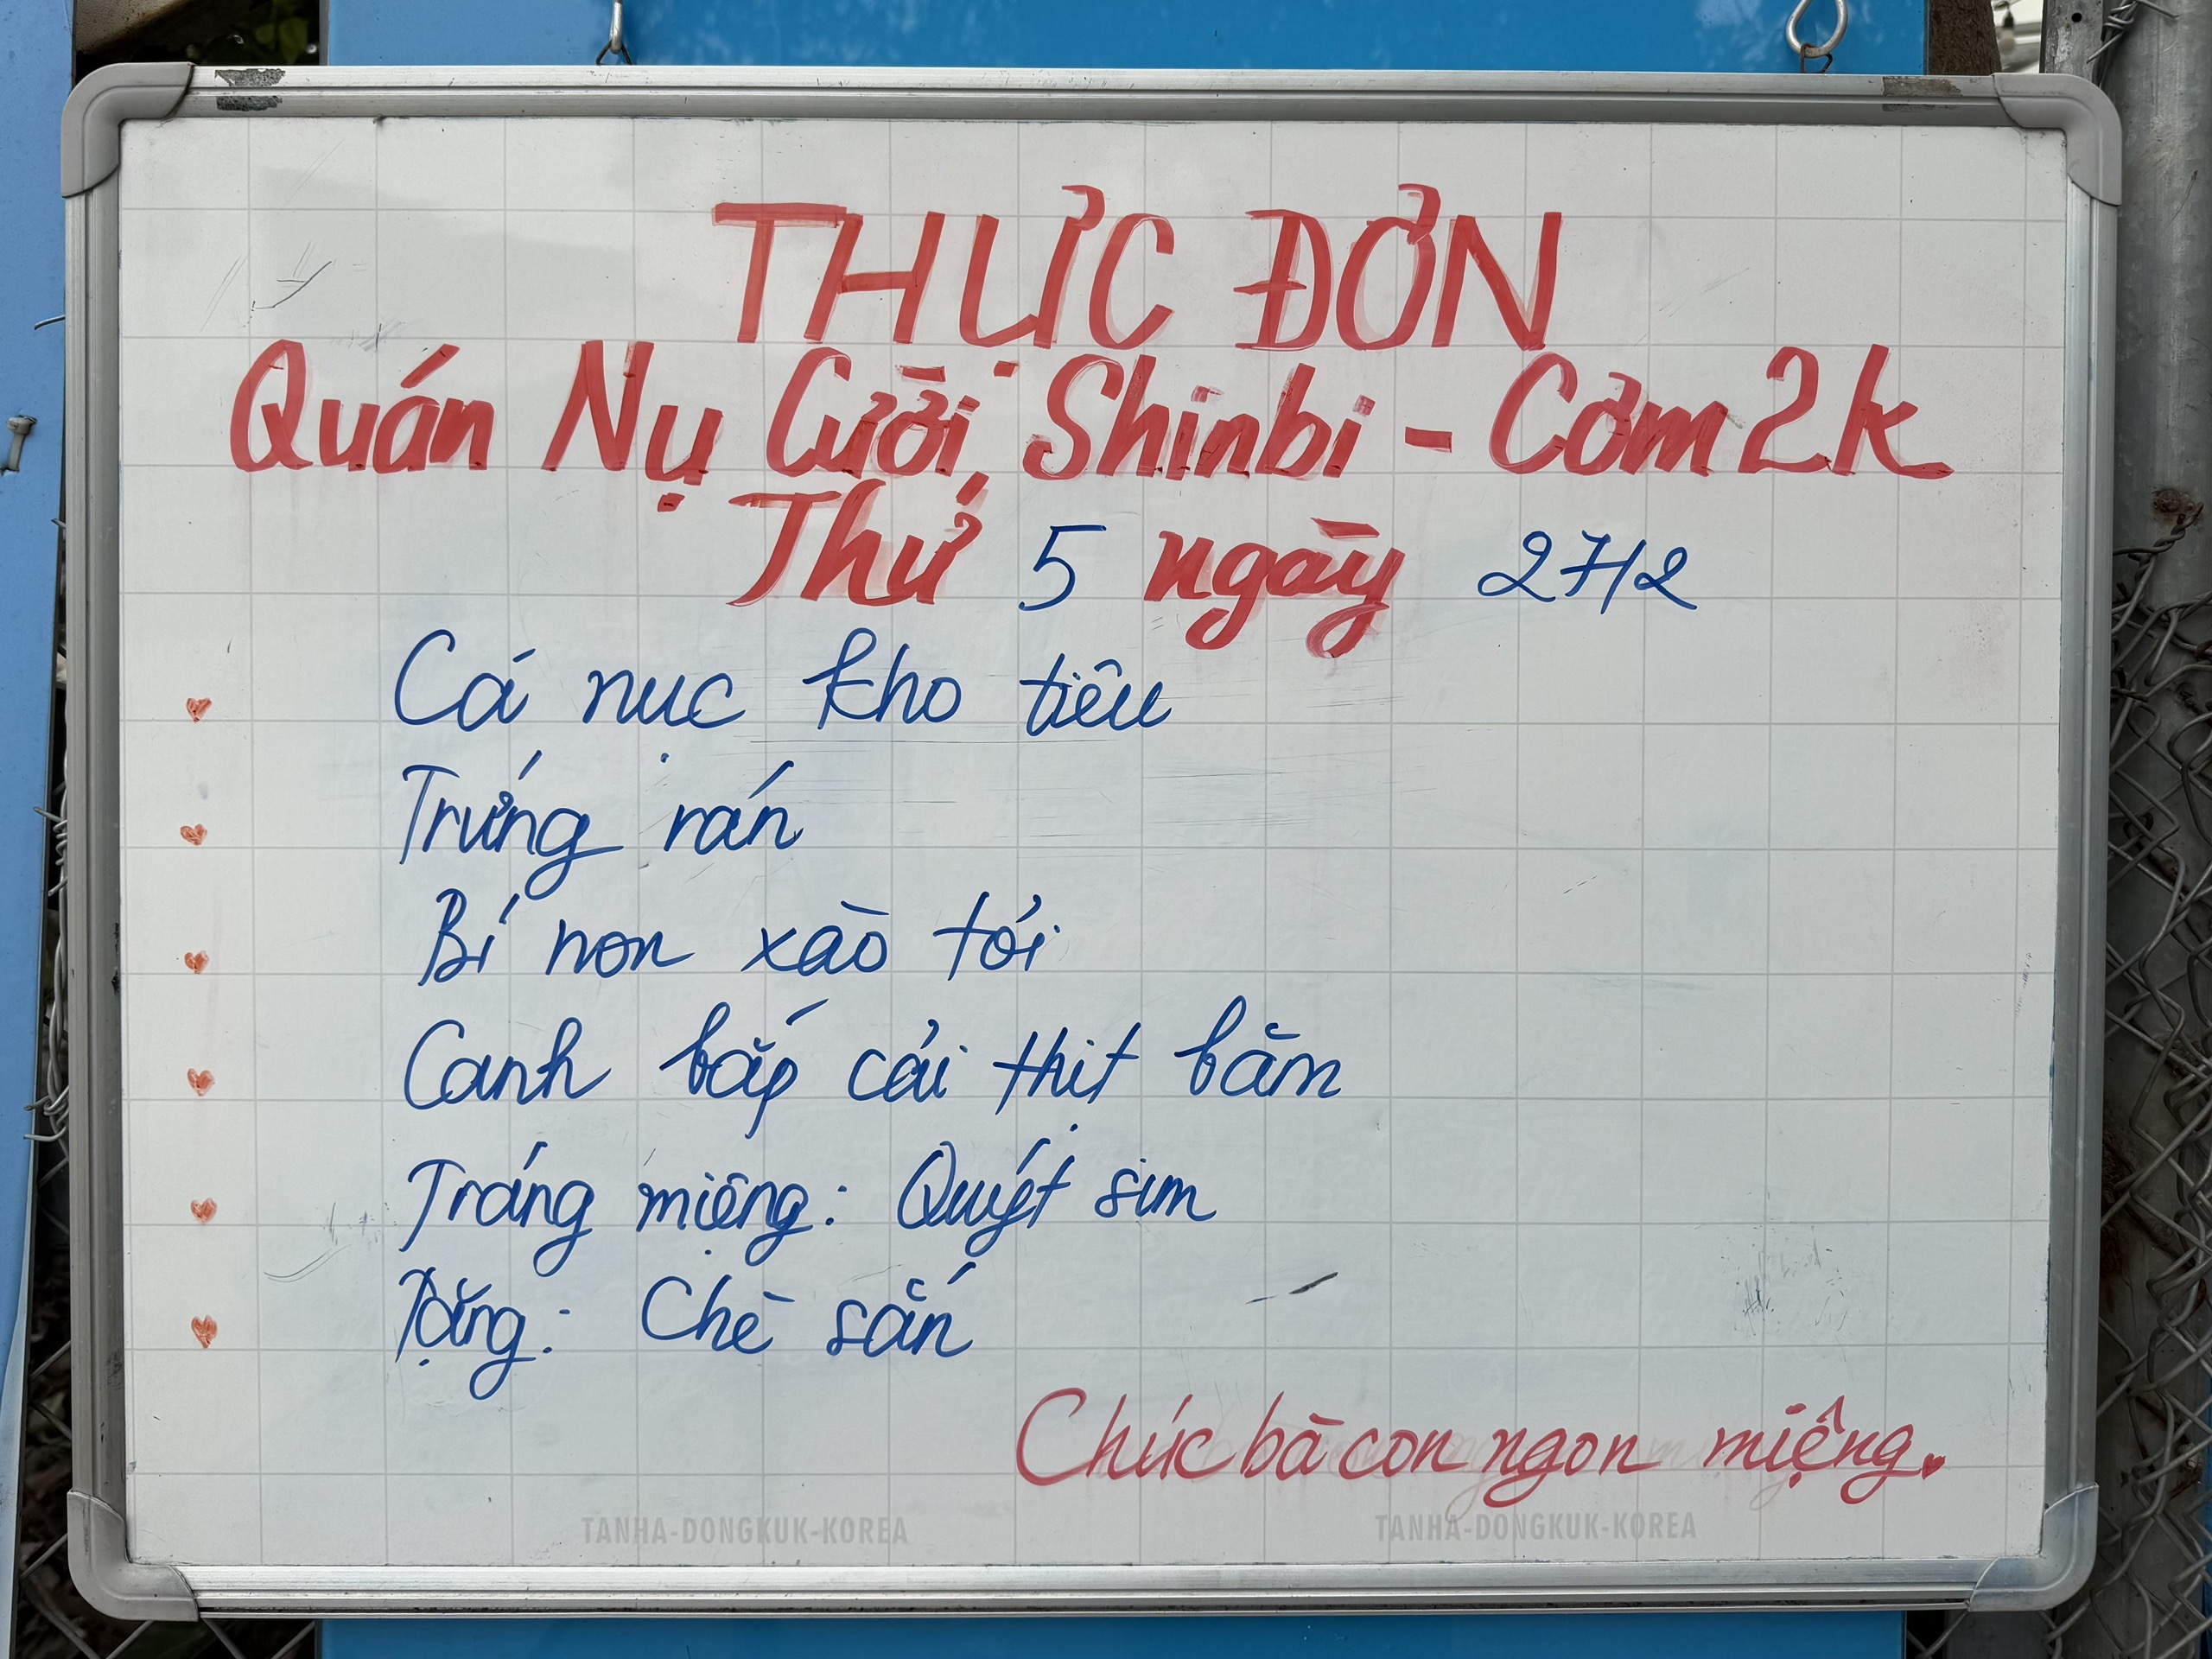 THỰC ĐƠN
Quán Nụ Cười Shinbi - Cơm 2k
Thứ 5 ngày 27/2
Cá nục kho tiêu
Trứng rán
Bí non xào tỏi
Canh bắp cải thịt băm
Tráng miệng: Quýt sim
Tặng: Chè sắn
Chúc bà con ngon miệng.
TANHA-DONGKUK-KOREA TANHA-DONGKUK-KOREA